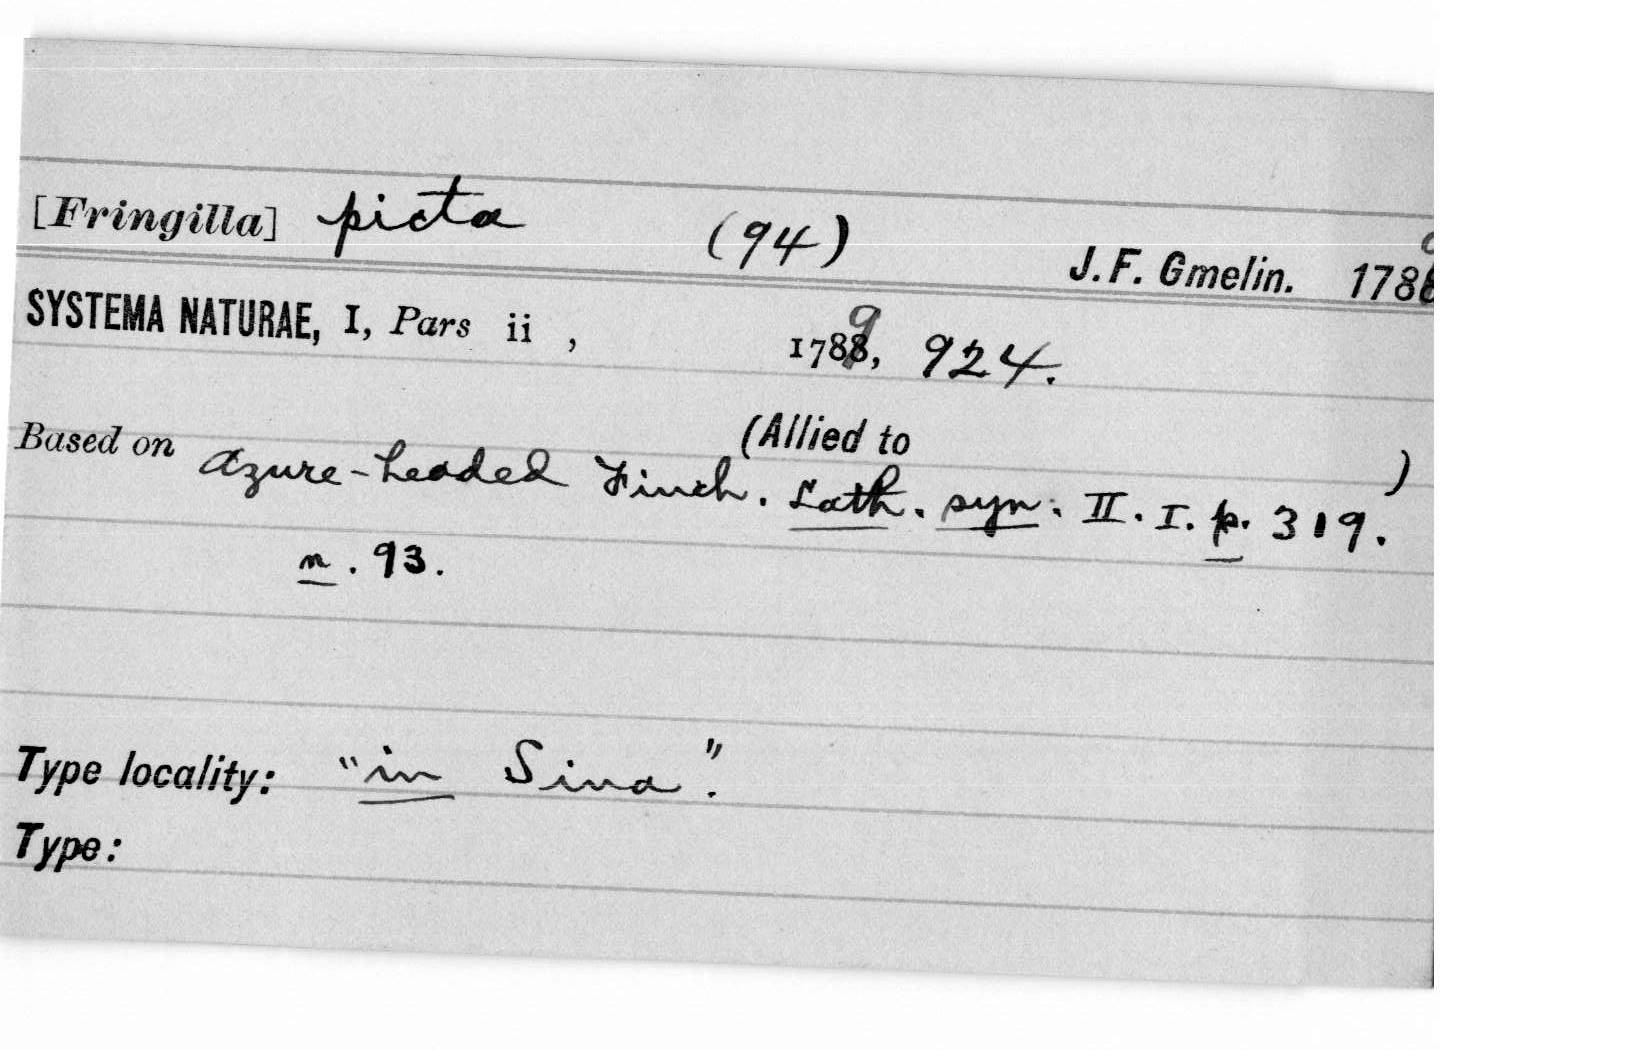 [Fringilla] picta (94) J. F. Gmelin. 1789
SYSTEMA NATURAE, I, Pars ii, 1789, 924.
(Allied to )
Based on Azure-headed Finch. Lath. syn. II. I. p. 319.
n. 93.
Type locality: "in Sina".
Type: